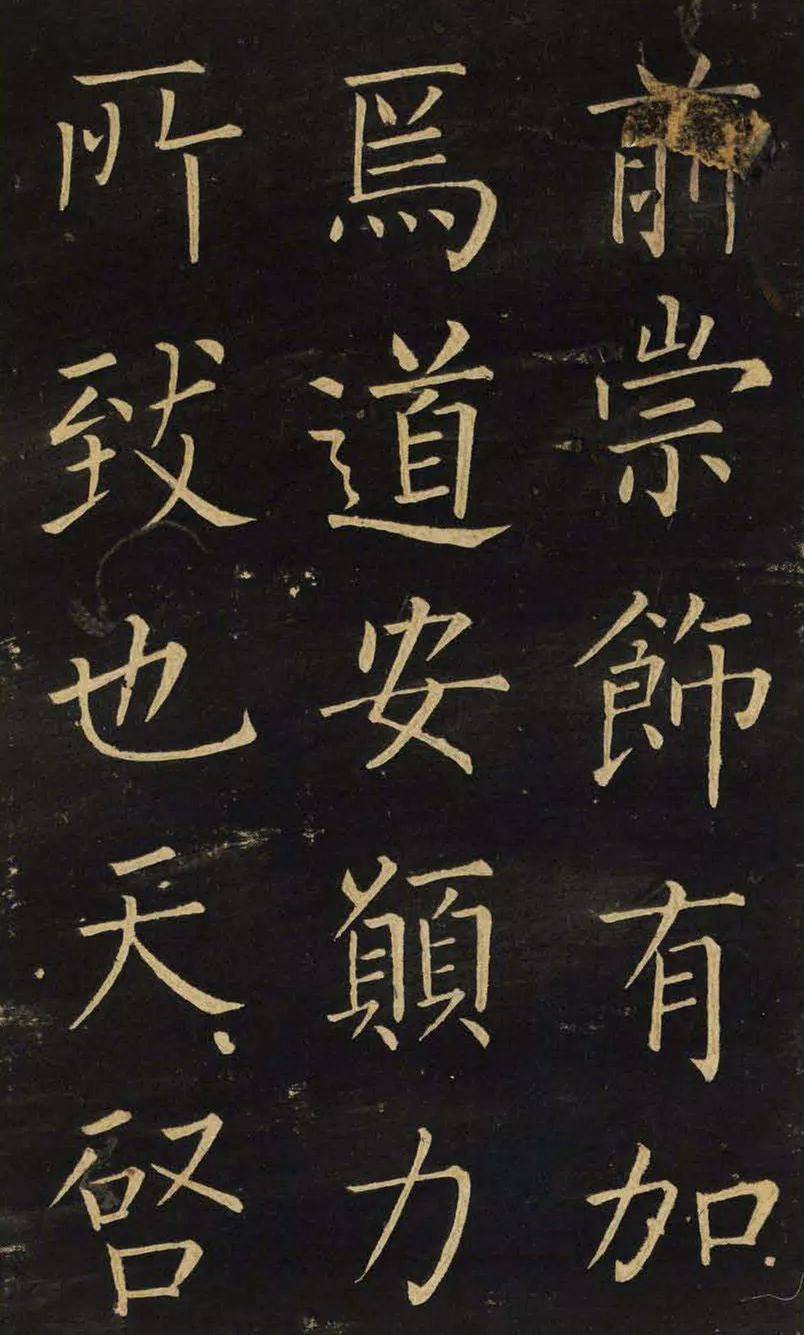 前崇飾有加
焉道安願力
所致也天啓